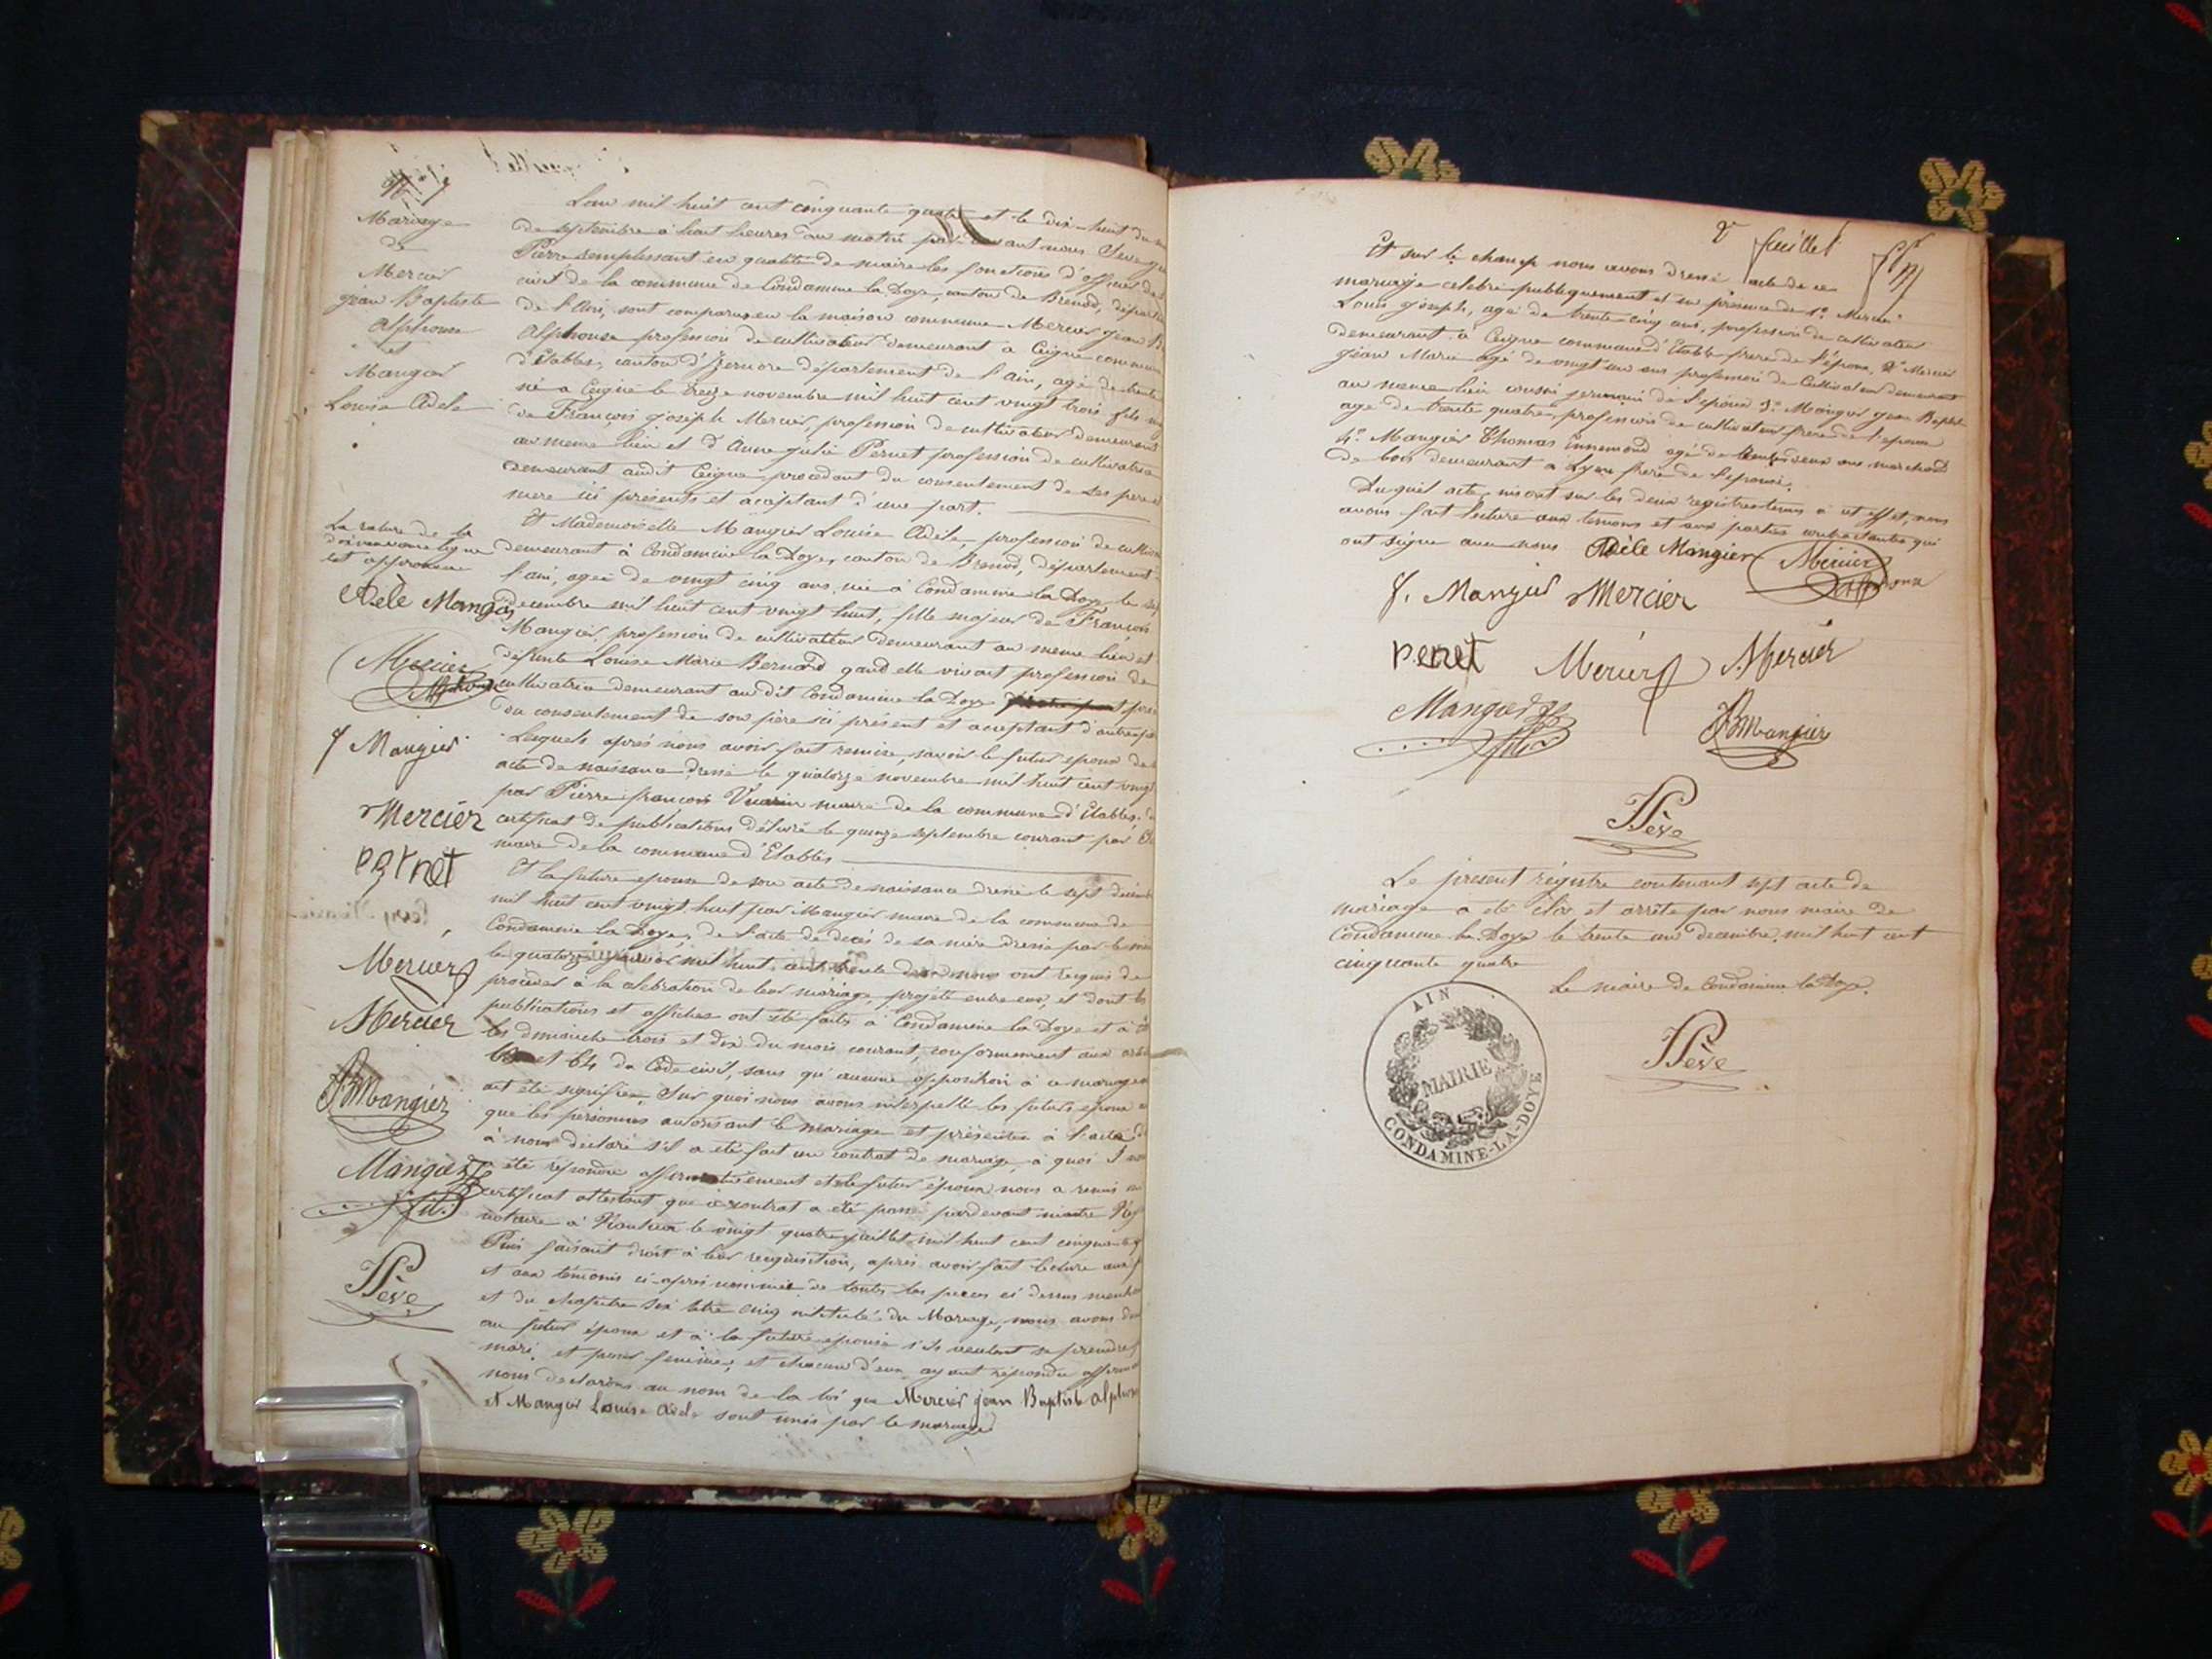 Mariage
de
Mercier
jean Baptiste
Alphonse
et
Mangier
Louise Adèle
La rature de la
ligne
est approuvée
Adèle Mangier
Mercier
Alphonse
f Mangier
Mercier
pernet
Mercier
Mercier
JB Mangier
Mangier
fils
PSève
Lan mil huit cent cinquante quatre et le dix-huit du
de septembre à huit heures du matin par devant nous Sève
Pierre remplissant en qualité de maire les fonctions d'officier de
civil de la commune de Condamine la Doye, canton de Brenod, départ
de l'Ain, sont comparus en la maison commune Mercier Jean B
Alphonse profession de cultivateur demeurant a Ceigne commune
d'Etables, canton d'Izernore département de l'ain, agé de trente
né a Ceigne le treize novembre mil huit cent vingt trois fils
de François joseph Mercier, profession de cultivateur demeurant
au meme lieu et d'Anne julie Pernet profession de cultivatrice
demeurant audit Ceigne procedant du consentement de ses pere et
mere ici présents et acceptant d'une part.
Et Mademoiselle Mangier Louise Adèle, profession de cultiv
demeurant à Condamine la Doye, canton de Brenod, département
l'ain, agée de vingt cinq ans, née à Condamine la Doye le
decembre mil huit cent vingt huit, fille majeur de François
Mangier, profession de cultivateur demeurant au meme lieu et
défunte Louise Marie Bernard quand elle vivait profession de
cultivatrice demeurant au dit Condamine la Doye
du consentement de son père ici présent et acceptant d'autre p
Lesquels après nous avoir fait remise, savoir le futur epoux de
acte de naissance dressé le quatorze novembre mil huit cent vingt
par Pierre françois maire de la commune d'Etables,
certificat de publications délivré le quinze septembre courant par
maire de la commune d'Etables
Et la future epouse de son acte de naissance dressé le sept décem
mil huit cent vingt huit par Mangier maire de la commune de
Condamine la Doye, de l'acte de decès de sa mère dressé par le
le quatorze mil huit cent trente nous ont requis de
procéder à la celebration de leur mariage projeté entre eux, et dont les
publications et affiches ont été faits à Condamine la Doye et à
les dimanche trois et dix du mois courant, conformement aux
63 et 64 du Code civil, sans qu'aucune opposition à ce mariage
ait été signifiée, Sur quoi nous avons interpellé les futurs epoux
que les personnes autorisant le mariage et présentes à l'acte
à nous declaré s'il a été fait un contrat de mariage, à quoi
été répondu affirmativement et le futur époux nous a remis
certificat attestant que ce contrat a été passé pardevant maitre
notaire à Nantua le vingt quatre juillet mil huit cent cinquante
Puis faisant droit à leur requisition, après avoir fait lecture aux
et aux témoins ci-après nommés de toutes les pieces ci dessus
et du chapitre six titre cinq intitulé du Mariage, nous avons
au futur époux et à la future epouse s'ils veulent se prendre
mari et pour femme, et chacun d'eux ayant répondu affirm
nous declarons au nom de la loi que Mercier jean Baptiste Alphon
et Mangier Louise Adèle sont unis par le mariage
2e feuillet
Et sur le champ nous avons dressé acte de ce
mariage celebré publiquement et en presence de 1° Mercier
Louis joseph, agé de trente cinq ans, profession de cultivateur
demeurant à Ceigne commune d'Etable frere de l'époux, 2° Mercier
jean Marie agé de vingt un ans profession de Cultivateur demeurant
au meme lieu cousin germain de l'époux 3° Mangier jean Baptiste
age de trente quatre, profession de cultivateur frere de l'epouse
4° Mangier Thomas Ennemond agé de deux ans marchand
de bois demeurant a Lyon frere de l'epouse,
Du quel acte, inscrit sur les deux registres tenus à cet effet, nous
avons fait lecture aux temoins et aux parties contractantes qui
ont signé avec nous Adèle Mangier Mercier
Alphonse
f. Mangier Mercier
pernet Mercier Mercier
Mangier
fils JB Mangier
PSève
Le présent régistre contenant sept acte de
mariage a eté clos et arrêté par nous maire de
Condamine la Doye le trente un decembre, mil huit cent
cinquante quatre
Le maire de Condamine la Doye.
PSève
AIN
MAIRIE
CONDAMINE-LA-DOYE